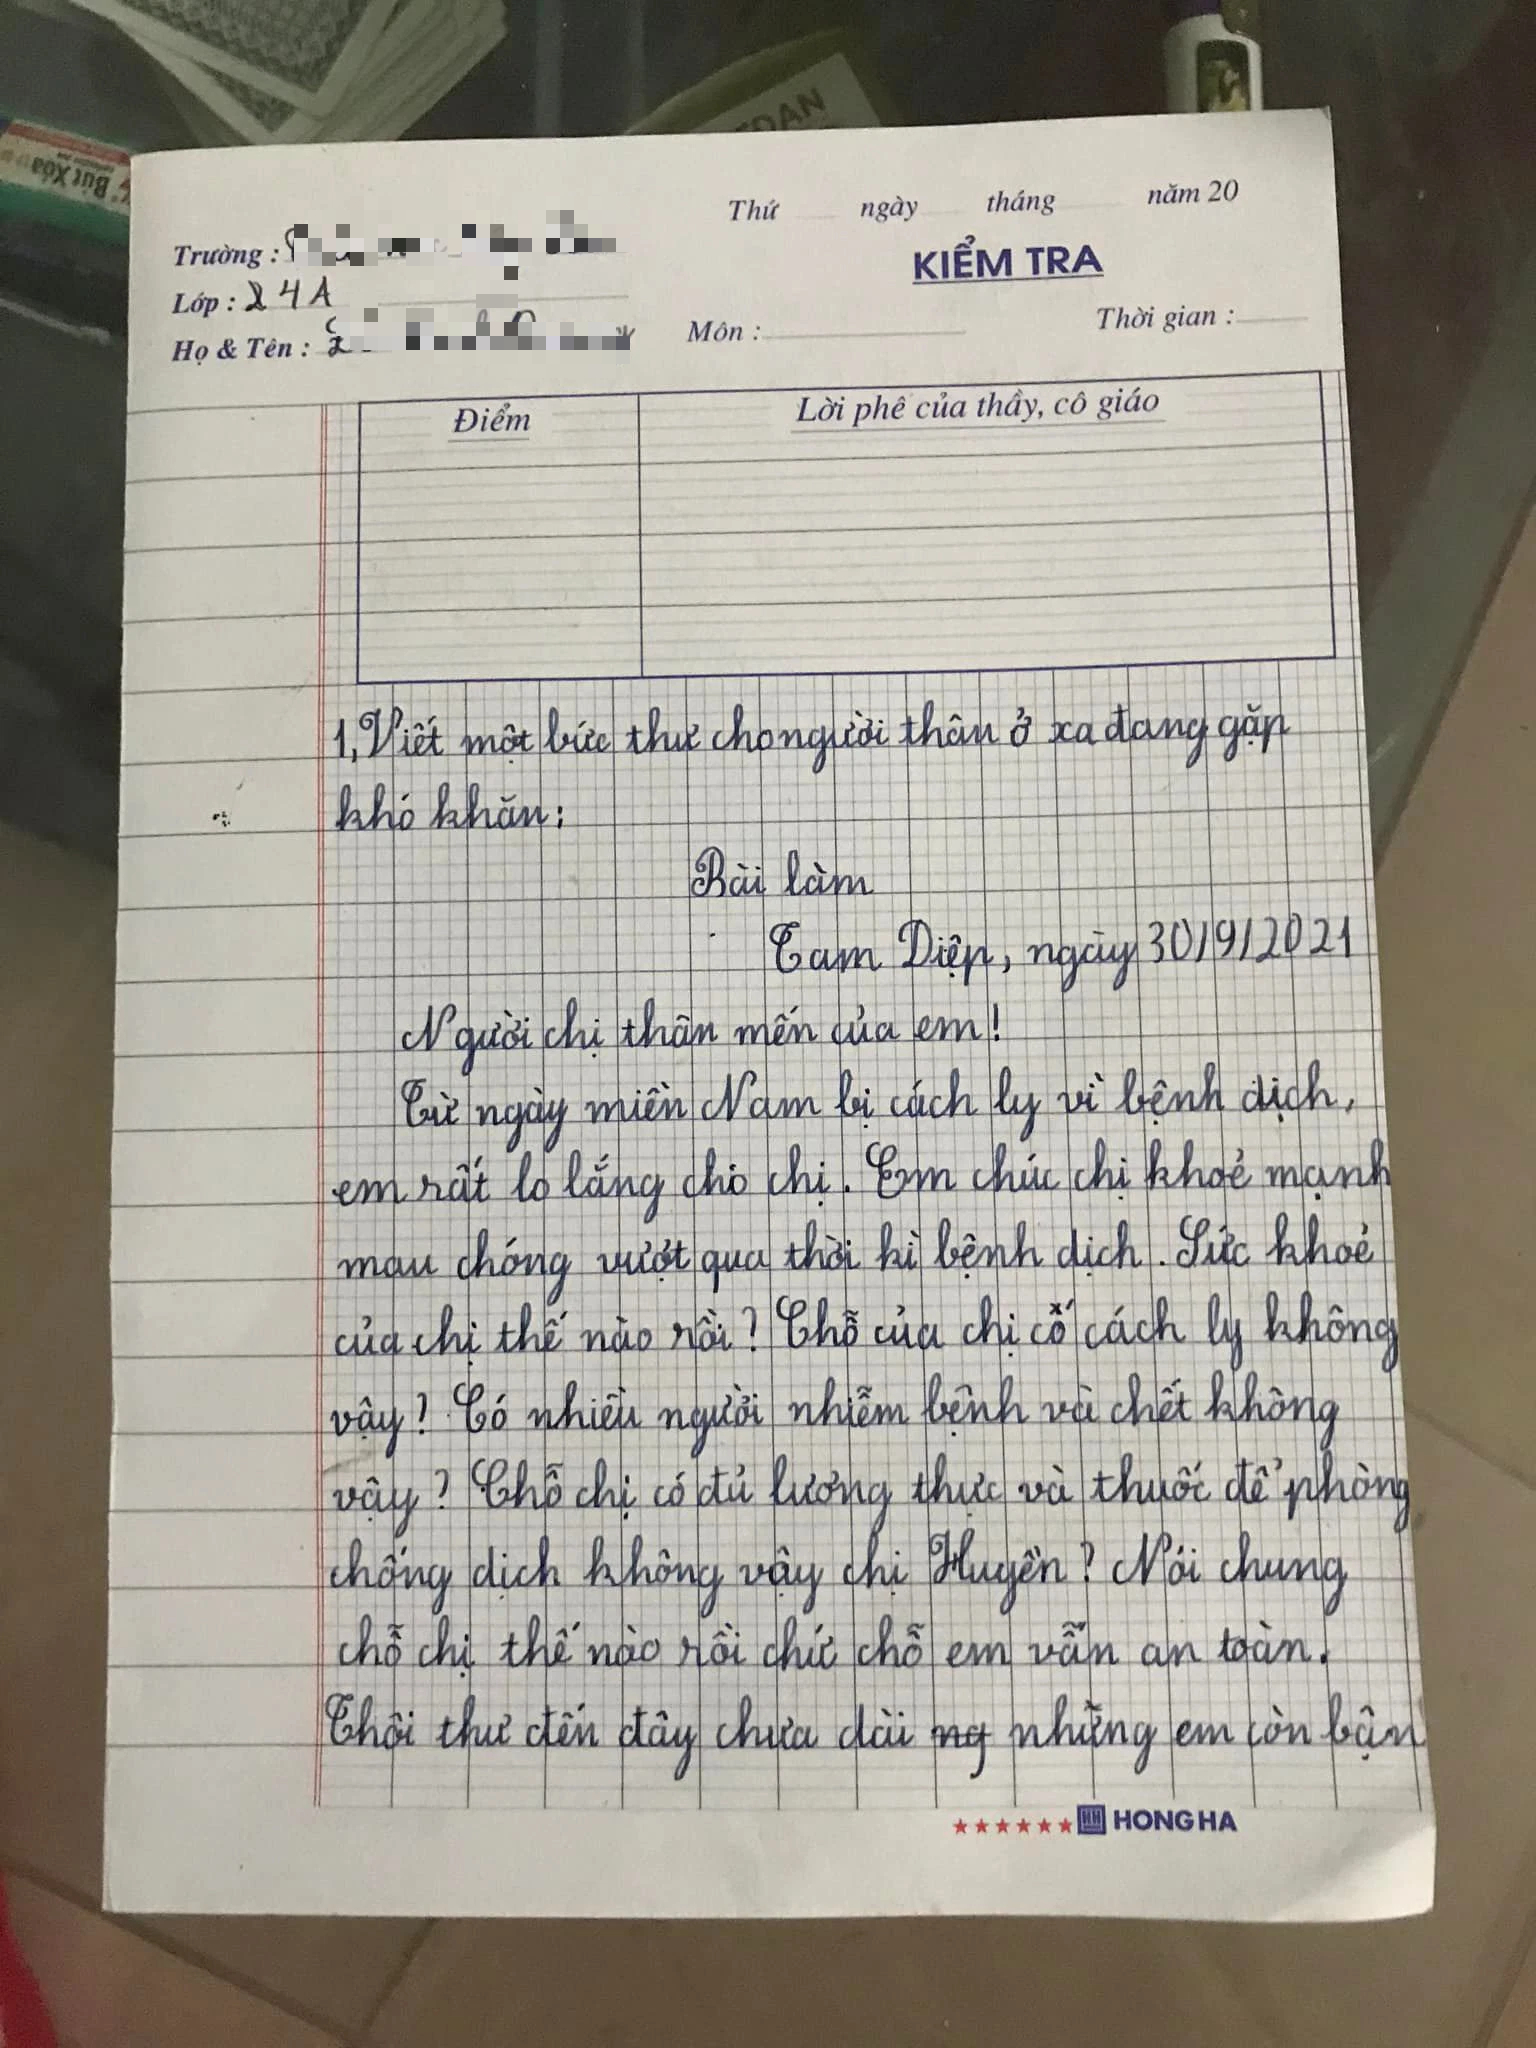 Bút Xóa
Thứ ngày tháng năm 20
Trường :
KIỂM TRA
Lớp : 24A
Họ & Tên :
Môn :
Thời gian :
Điểm
Lời phê của thầy, cô giáo
1, Viết một bức thư cho người thân ở xa đang gặp
khó khăn:
Bài làm
Tam Diệp, ngày 30/9/2021
Người chị thân mến của em!
Từ ngày miền Nam bị cách ly vì bệnh dịch,
em rất lo lắng cho chị. Em chúc chị khoẻ mạnh
mau chóng vượt qua thời kì bệnh dịch. Sức khoẻ
của chị thế nào rồi? Chỗ của chị có cách ly không
vậy? Có nhiều người nhiễm bệnh và chết không
vậy? Chỗ chị có đủ lương thực và thuốc để phòng
chống dịch không vậy chị Huyền? Nói chung
chỗ chị thế nào rồi chứ chỗ em vẫn an toàn.
Thôi thư đến đây chưa dài ng nhừng em còn bận
HH HONG HA